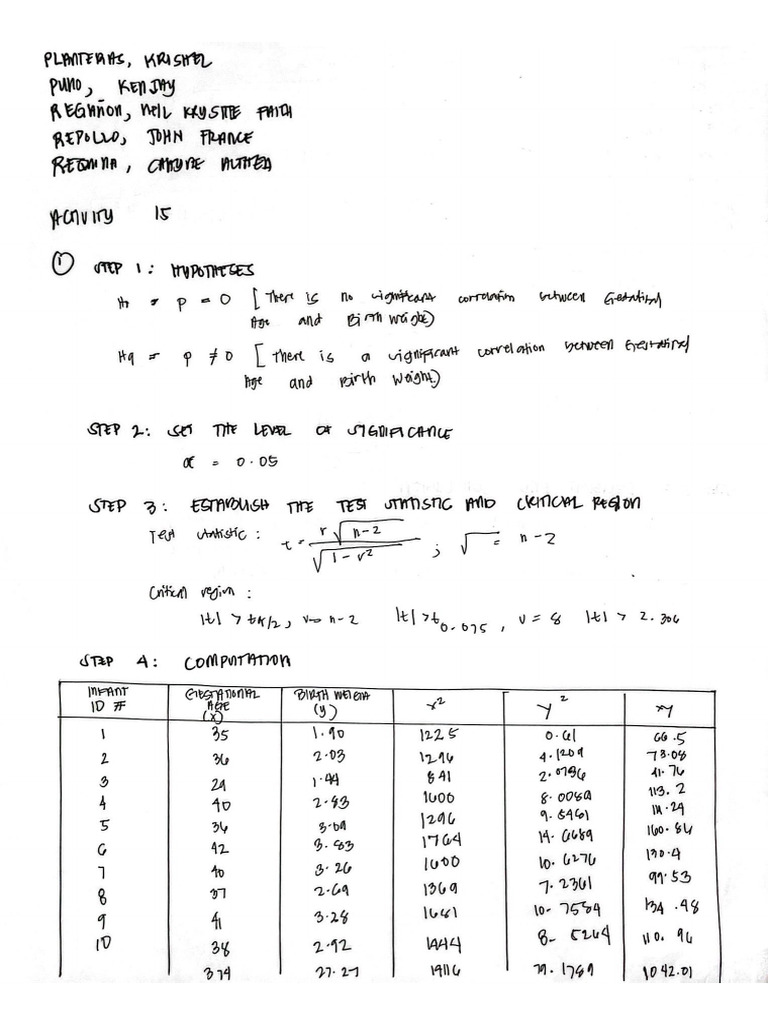 PLANTERAS, KRISHEL
PUNO, KENJAY
REGAÑON, NEIL KRYSTTE FAITH
REPOLLO, JOHN FRANCE
REQMNA, ALTHEA
ACTIVITY 15
① STEP 1: HYPOTHESES
H = ρ = 0 [There is no significant correlation between Gestational
Age and Birth Weight)
Ha = ρ ≠ 0 [There is a significant correlation between Gestational
Age and Birth Weight)
STEP 2: SET THE LEVEL OF SIGNIFICANCE
α = 0.05
STEP 3: ESTABLISH THE TEST STATISTIC AND CRITICAL REGION
Test statistic: t = r√n-2 / √1-r² ; √ = n-2
Critical region:
|t| > tα/2, v = n-2 |t| > t0.025, v = 8 |t| > 2.306
STEP 4: COMPUTATION
INFANT ID # GESTATIONAL AGE (x) BIRTH WEIGHT (y) x² y² xy
1 35 1.90 1225 3.61 66.5
2 36 2.03 1296 4.1209 73.08
3 29 1.44 841 2.0736 41.76
4 40 2.83 1600 8.0089 113.2
5 36 3.09 1296 9.5481 111.24
6 42 3.83 1764 14.6689 160.86
7 40 3.26 1600 10.6276 130.4
8 37 2.69 1369 7.2361 99.53
9 41 3.28 1681 10.7584 134.48
10 38 2.92 1444 8.5264 110.96
374 27.27 14116 79.1789 1042.01